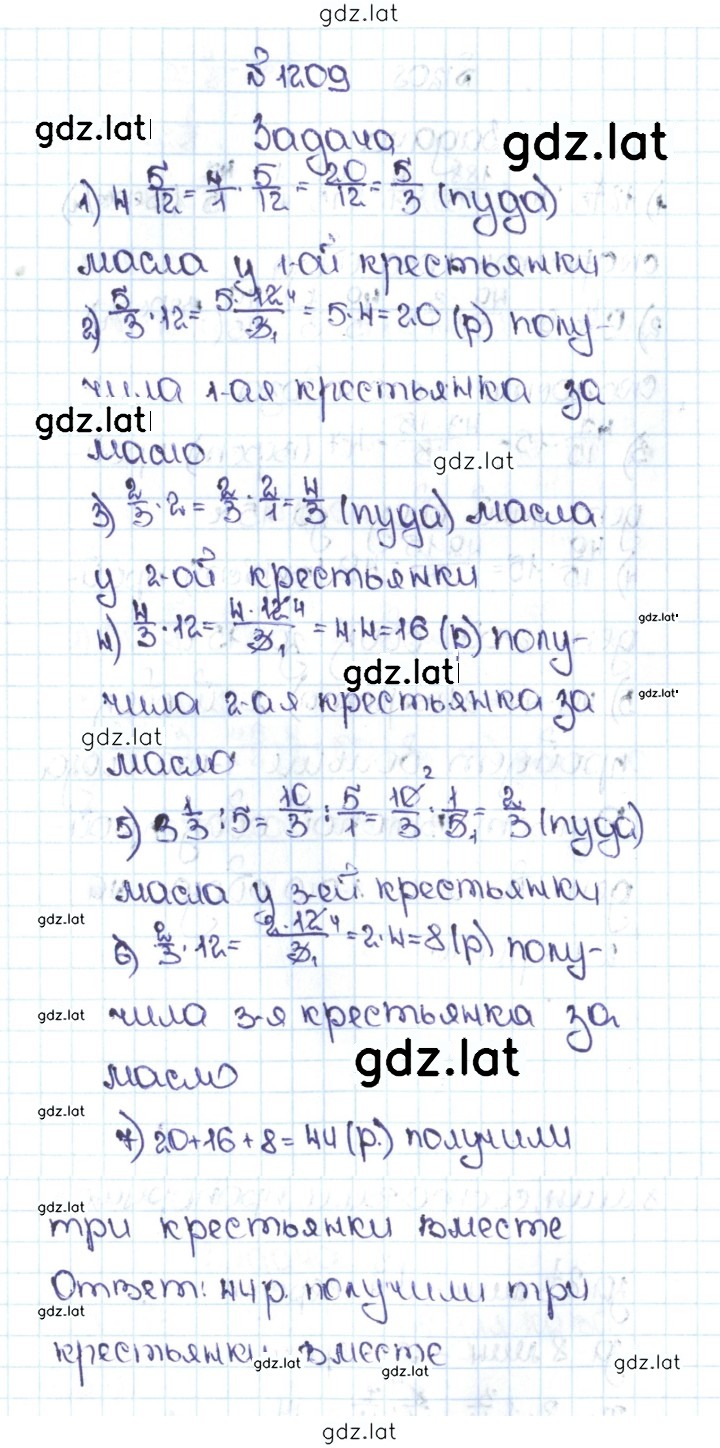 gdz.lat
№ 1209
gdz.lat
Задача
gdz.lat
1) 4 5/12 = 4/1 · 5/12 = 20/12 = 5/3 (пуда)
масла у 1-ой крестьянки
2) 5/3 · 12 = 5·12⁴/3₁ = 5·4=20 (р) полу-
чила 1-ая крестьянка за
gdz.lat
масло
gdz.lat
3) 2/3 · 2 = 2/3 · 2/1 = 4/3 (пуда) масла
у 2-ой крестьянки
gdz.lat
4) 4/3 · 12 = 4·12⁴/3₁ = 4·4=16 (р) полу-
gdz.lat
чила 2-ая крестьянка за
gdz.lat
gdz.lat
масло
5) 3 1/3 : 5 = 10/3 : 5/1 = 10²/3 · 1/5₁ = 2/3 (пуда)
масла у 3-ей крестьянки
gdz.lat
6) 2/3 · 12 = 2·12⁴/3₁ = 2·4=8 (р) полу-
gdz.lat
чила 3-я крестьянка за
gdz.lat
масло
gdz.lat
7) 20+16+8=44 (р.) получили
gdz.lat
три крестьянки вместе
Ответ: 44 р. получили три
gdz.lat
крестьянки вместе
gdz.lat
gdz.lat
gdz.lat
gdz.lat